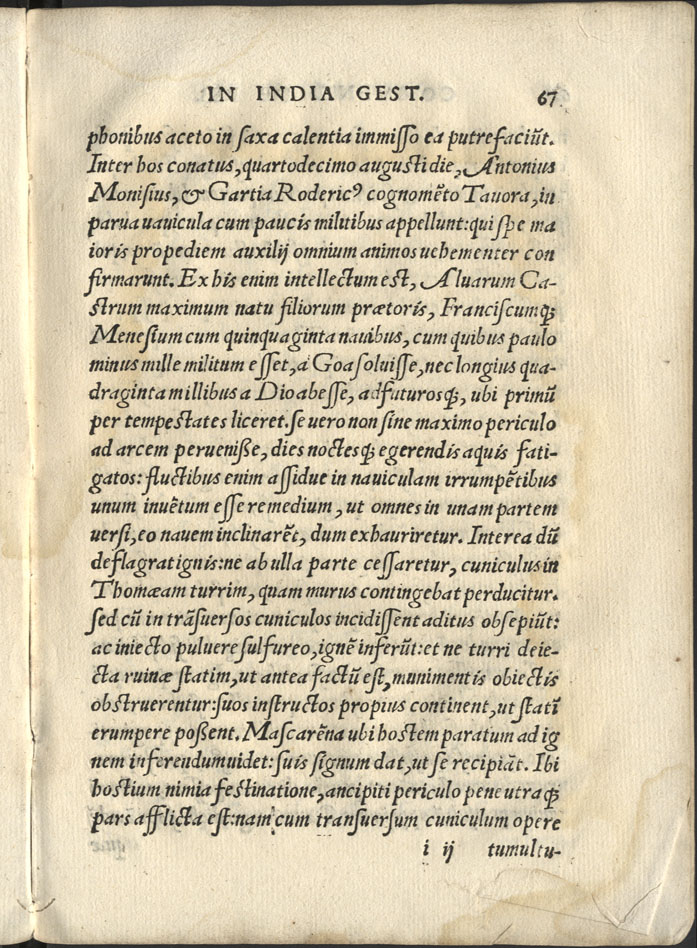 IN INDIA GEST. 67
phonibus aceto in saxa calentia immisso ea putrefaciūt.
Inter hos conatus, quartodecimo augusti die, Antonius
Monisius, & Gartia Rodericꝰ cognomēto Tauora, in
parua uauicula cum paucis militibus appellunt: qui spe ma
ioris propediem auxilij omnium animos uehementer con
firmarunt. Ex his enim intellectum est, Aluarum Ca-
strum maximum natu filiorum prætoris, Franciscumqꝫ
Menesium cum quinquaginta nauibus, cum quibus paulo
minus mille militum esset, à Goa soluisse, nec longius qua-
draginta millibus a Dio abesse, adfuturosqꝫ, ubi primū
per tempestates liceret. se uero non sine maximo periculo
ad arcem peruenisse, dies noctesqꝫ egerendis aquis fati-
gatos: fluctibus enim assidue in nauiculam irrumpētibus
unum inuētum esse remedium, ut omnes in unam partem
uersi, eo nauem inclinarēt, dum exhauriretur. Interea dū
deflagrat ignis: ne ab ulla parte cessaretur, cuniculus in
Thomæam turrim, quam murus contingebat perducitur.
sed cū in trāsuersos cuniculos incidissent aditus obsepiūt:
ac iniecto puluere sulfureo, ignē inferūt: et ne turri deie-
cta ruinæ statim, ut antea factū est, munimentis obiectis
obstruerentur: suos instructos propius continent, ut statī
erumpere possent. Mascarēna ubi hostem paratum ad ig
nem inferendum uidet: suis signum dat, ut se recipiāt. Ibi
hostium nimia festinatione, ancipiti periculo pene utraqꝫ
pars afflicta est: nam cum transuersum cuniculum opere
i ij tumultu-